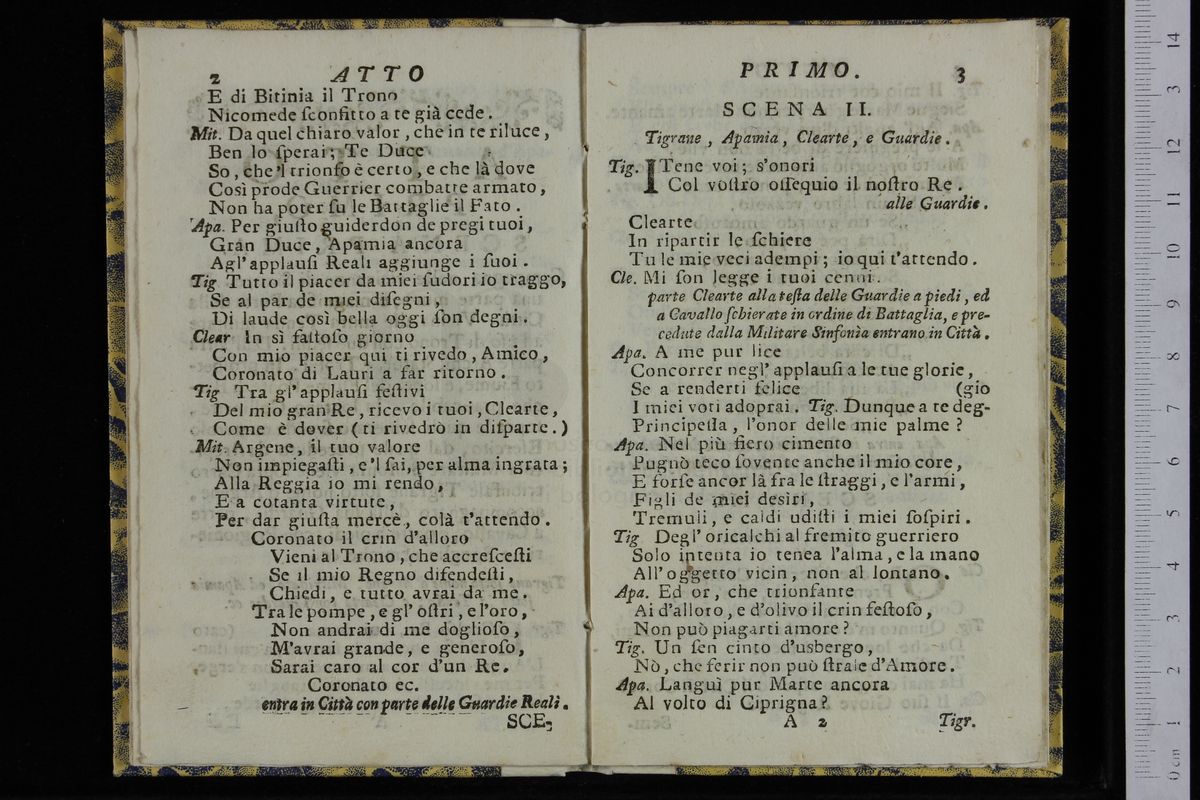 2 ATTO
E di Bitinia il Trono
Nicomede ſconfitto a te già cede.
Mit. Da quel chiaro valor, che in te riluce,
Ben lo ſperai; Te Duce
So, che 'l trionfo è certo, e che là dove
Così prode Guerrier combatte armato,
Non ha poter ſu le Battaglie il Fato.
Apa. Per giuſto guiderdon de pregi tuoi,
Gran Duce, Apamia ancora
Agl' applauſi Reali aggiunge i ſuoi.
Tig Tutto il piacer da miei ſudori io traggo,
Se al par de miei diſegni,
Di laude così bella oggi ſon degni.
Clear In sì faſtoſo giorno
Con mio piacer qui ti rivedo, Amico,
Coronato di Lauri a far ritorno.
Tig Tra gl' applauſi feſtivi
Del mio gran Re, ricevo i tuoi, Clearte,
Come è dover (ti rivedrò in diſparte.)
Mit. Argene, il tuo valore
Non impiegaſti, e 'l ſai, per alma ingrata;
Alla Reggia io mi rendo,
E a cotanta virtute,
Per dar giuſta mercè, colà t'attendo.
Coronato il crin d'alloro
Vieni al Trono, che accreſceſti
Se il mio Regno difendeſti,
Chiedi, e tutto avrai da me.
Tra le pompe, e gl' oſtri, e l'oro,
Non andrai di me doglioſo,
M'avrai grande, e generoſo,
Sarai caro al cor d'un Re.
Coronato ec.
entra in Città con parte delle Guardie Reali.
SCE-
PRIMO. 3
SCENA II.
Tigrane, Apamia, Clearte, e Guardie.
Tig. ITene voi; s'onori
Col voſtro oſſequio il noſtro Re.
alle Guardie.
Clearte
In ripartir le ſchiere
Tu le mie veci adempi; io qui t'attendo.
Cle. Mi ſon legge i tuoi cenni.
parte Clearte alla teſta delle Guardie a piedi, ed
a Cavallo ſchierate in ordine di Battaglia, e pre-
cedute dalla Militare Sinfonìa entrano in Città.
Apa. A me pur lice
Concorrer negl' applauſi a le tue glorie,
Se a renderti felice (gio
I miei voti adoprai. Tig. Dunque a te deg-
Principeſſa, l'onor delle mie palme?
Apa. Nel più fiero cimento
Pugnò teco ſovente anche il mio core,
E forſe ancor là fra le ſtraggi, e l'armi,
Figli de miei deſiri,
Tremuli, e caldi udiſti i miei ſoſpiri.
Tig Degl' oricalchi al fremito guerriero
Solo intenta io tenea l'alma, e la mano
All' oggetto vicin, non al lontano.
Apa. Ed or, che trionfante
Ai d'alloro, e d'olivo il crin feſtoſo,
Non può piagarti amore?
Tig. Un ſen cinto d'usbergo,
Nò, che ferir non può ſtrale d'Amore.
Apa. Languì pur Marte ancora
Al volto di Ciprigna?
A 2 Tigr.
0 cm 1 2 3 4 5 6 7 8 9 10 11 12 3 14